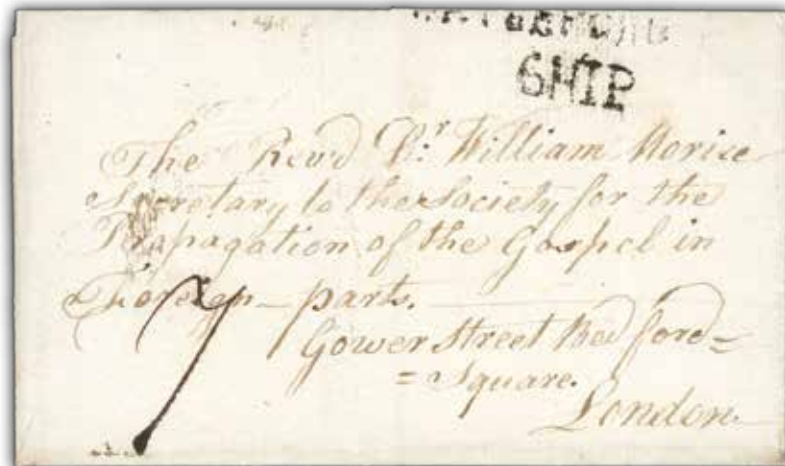 SHIP
The Revd Dr. William Morice
Secretary to the Society for the
Propagation of the Gospel in
Foreign parts.
Gower Street Bedford=
=Square.
London.
7